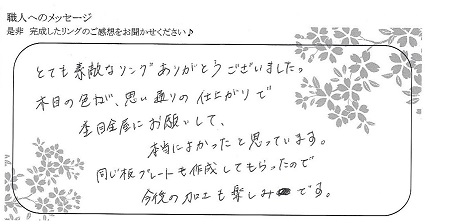 職人へのメッセージ
是非 完成したリングのご感想をお聞かせください♪
とても素敵なリングありがとうございました。
木目の色が、思い通りの仕上がりで
杢目金屋にお願いして、
本当によかったと思っています。
同じ板プレートも作成してもらったので
今後の加工も楽しみです。